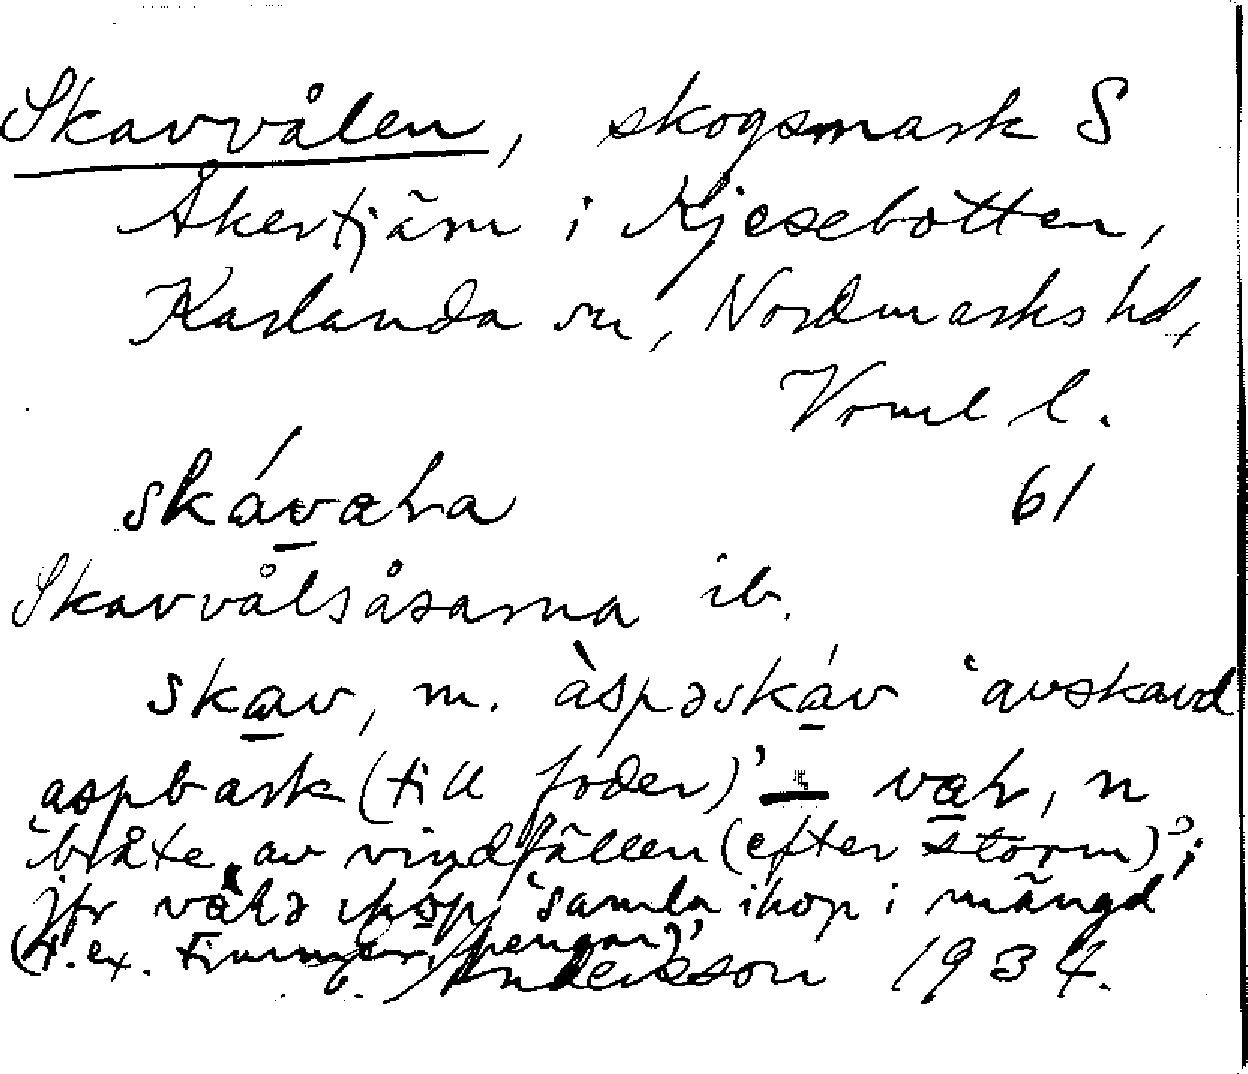 Skavvålen, skogsmark S
Åkertjärn i Kjesebotten,
Karlanda sn, Nordmarks hd,
Vrml l.
skávaɫa 61
Skavvålsåsarna ib.
skav, m. àspəskáv 'avskavd
aspbark (till foder)' – vaɫ, n
'bråte av vindfällen (efter storm)';
jfr vàɫə ihóp, 'samla ihop i mängd
(t.ex. timmer, pengar)'
Andersson 1934.